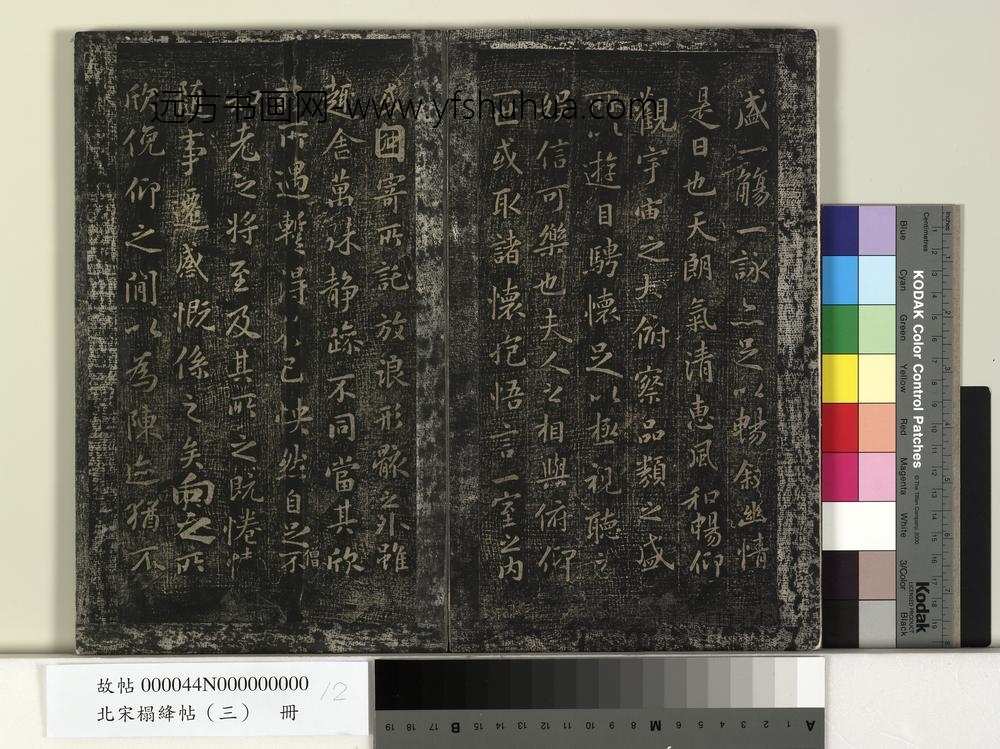 盛一觴一詠亦足以暢敘幽情
是日也天朗氣清惠風和暢仰
觀宇宙之大俯察品類之盛
所以遊目騁懷足以極視聽之
娛信可樂也夫人之相與俯仰
一世或取諸懷抱悟言一室之內
或因寄所託放浪形骸之外雖
趣舍萬殊静躁不同當其欣
於所遇暫得於己怏然自足不
僧
知老之將至及其所之既惓
隨事遷感慨係之矣向之所
欣俛仰之間以為陳迹猶不
远方书画网 www.yfshuhua.com
故帖 000044N000000000
12
北宋榻絳帖（三） 冊
KODAK Color Control Patches
© The Tiffen Company, 2000
Kodak
LICENSED PRODUCT
Blue
Cyan
Green
Yellow
Red
Magenta
White
3/Color
Black
Inches
Centimetres
A 1 2 3 4 5 6 M 8 9 10 11 12 13 14 15 B 17 18 19